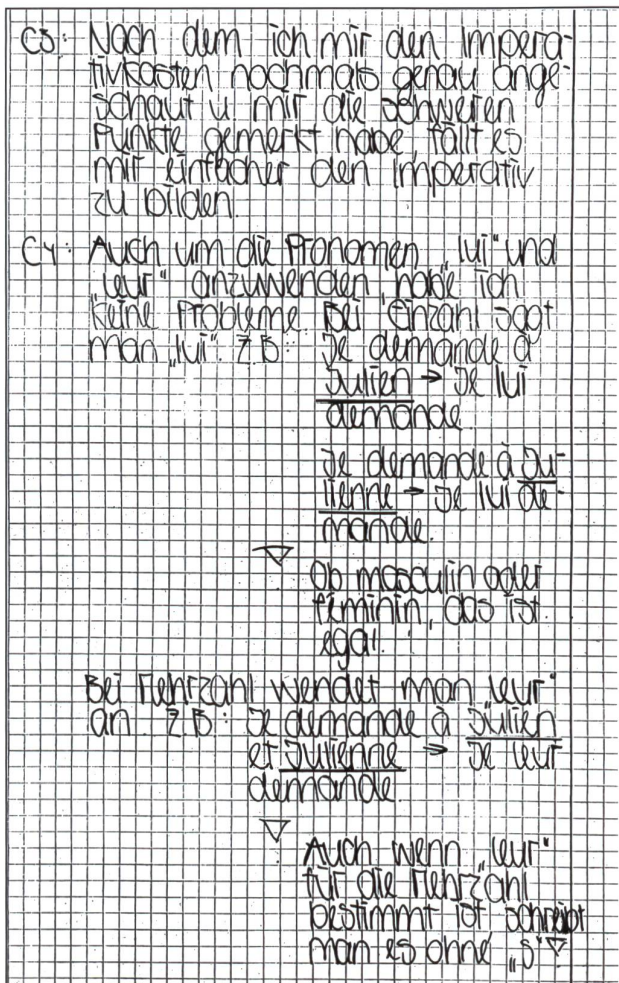 C3: Nach dem ich mir den Impera-
tivkasten nochmals genau ange-
schaut u mir die schweren
Punkte gemerkt habe, fällt es
mir einfacher den Imperativ
zu bilden.
C4: Auch um die Pronomen „lui“ und
„leur“ anzuwenden habe ich
keine Probleme. Bei Einzahl sagt
man „lui“. Z.B: Je demande à
Julien → Je lui
demande.
Je demande à Ju-
lienne → Je lui de-
mande.
Ob masculin oder
féminin, das ist
egal.
Bei Mehrzahl wendet man „leur“
an. Z.B: Je demande à Julien
et Julienne → Je leur
demande.
Auch wenn „leur“
für die Mehrzahl
bestimmt ist, schreibt
man es ohne „s“